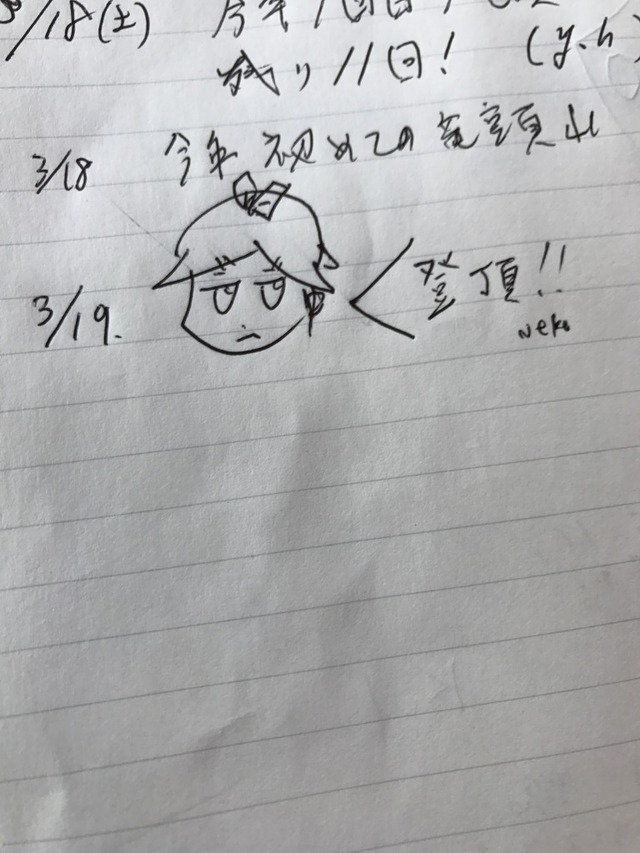 3/18(土) 今年1回目!
残り11回! (y.h
3/18 今年初めての 頂
3/19. 登頂!!
neko